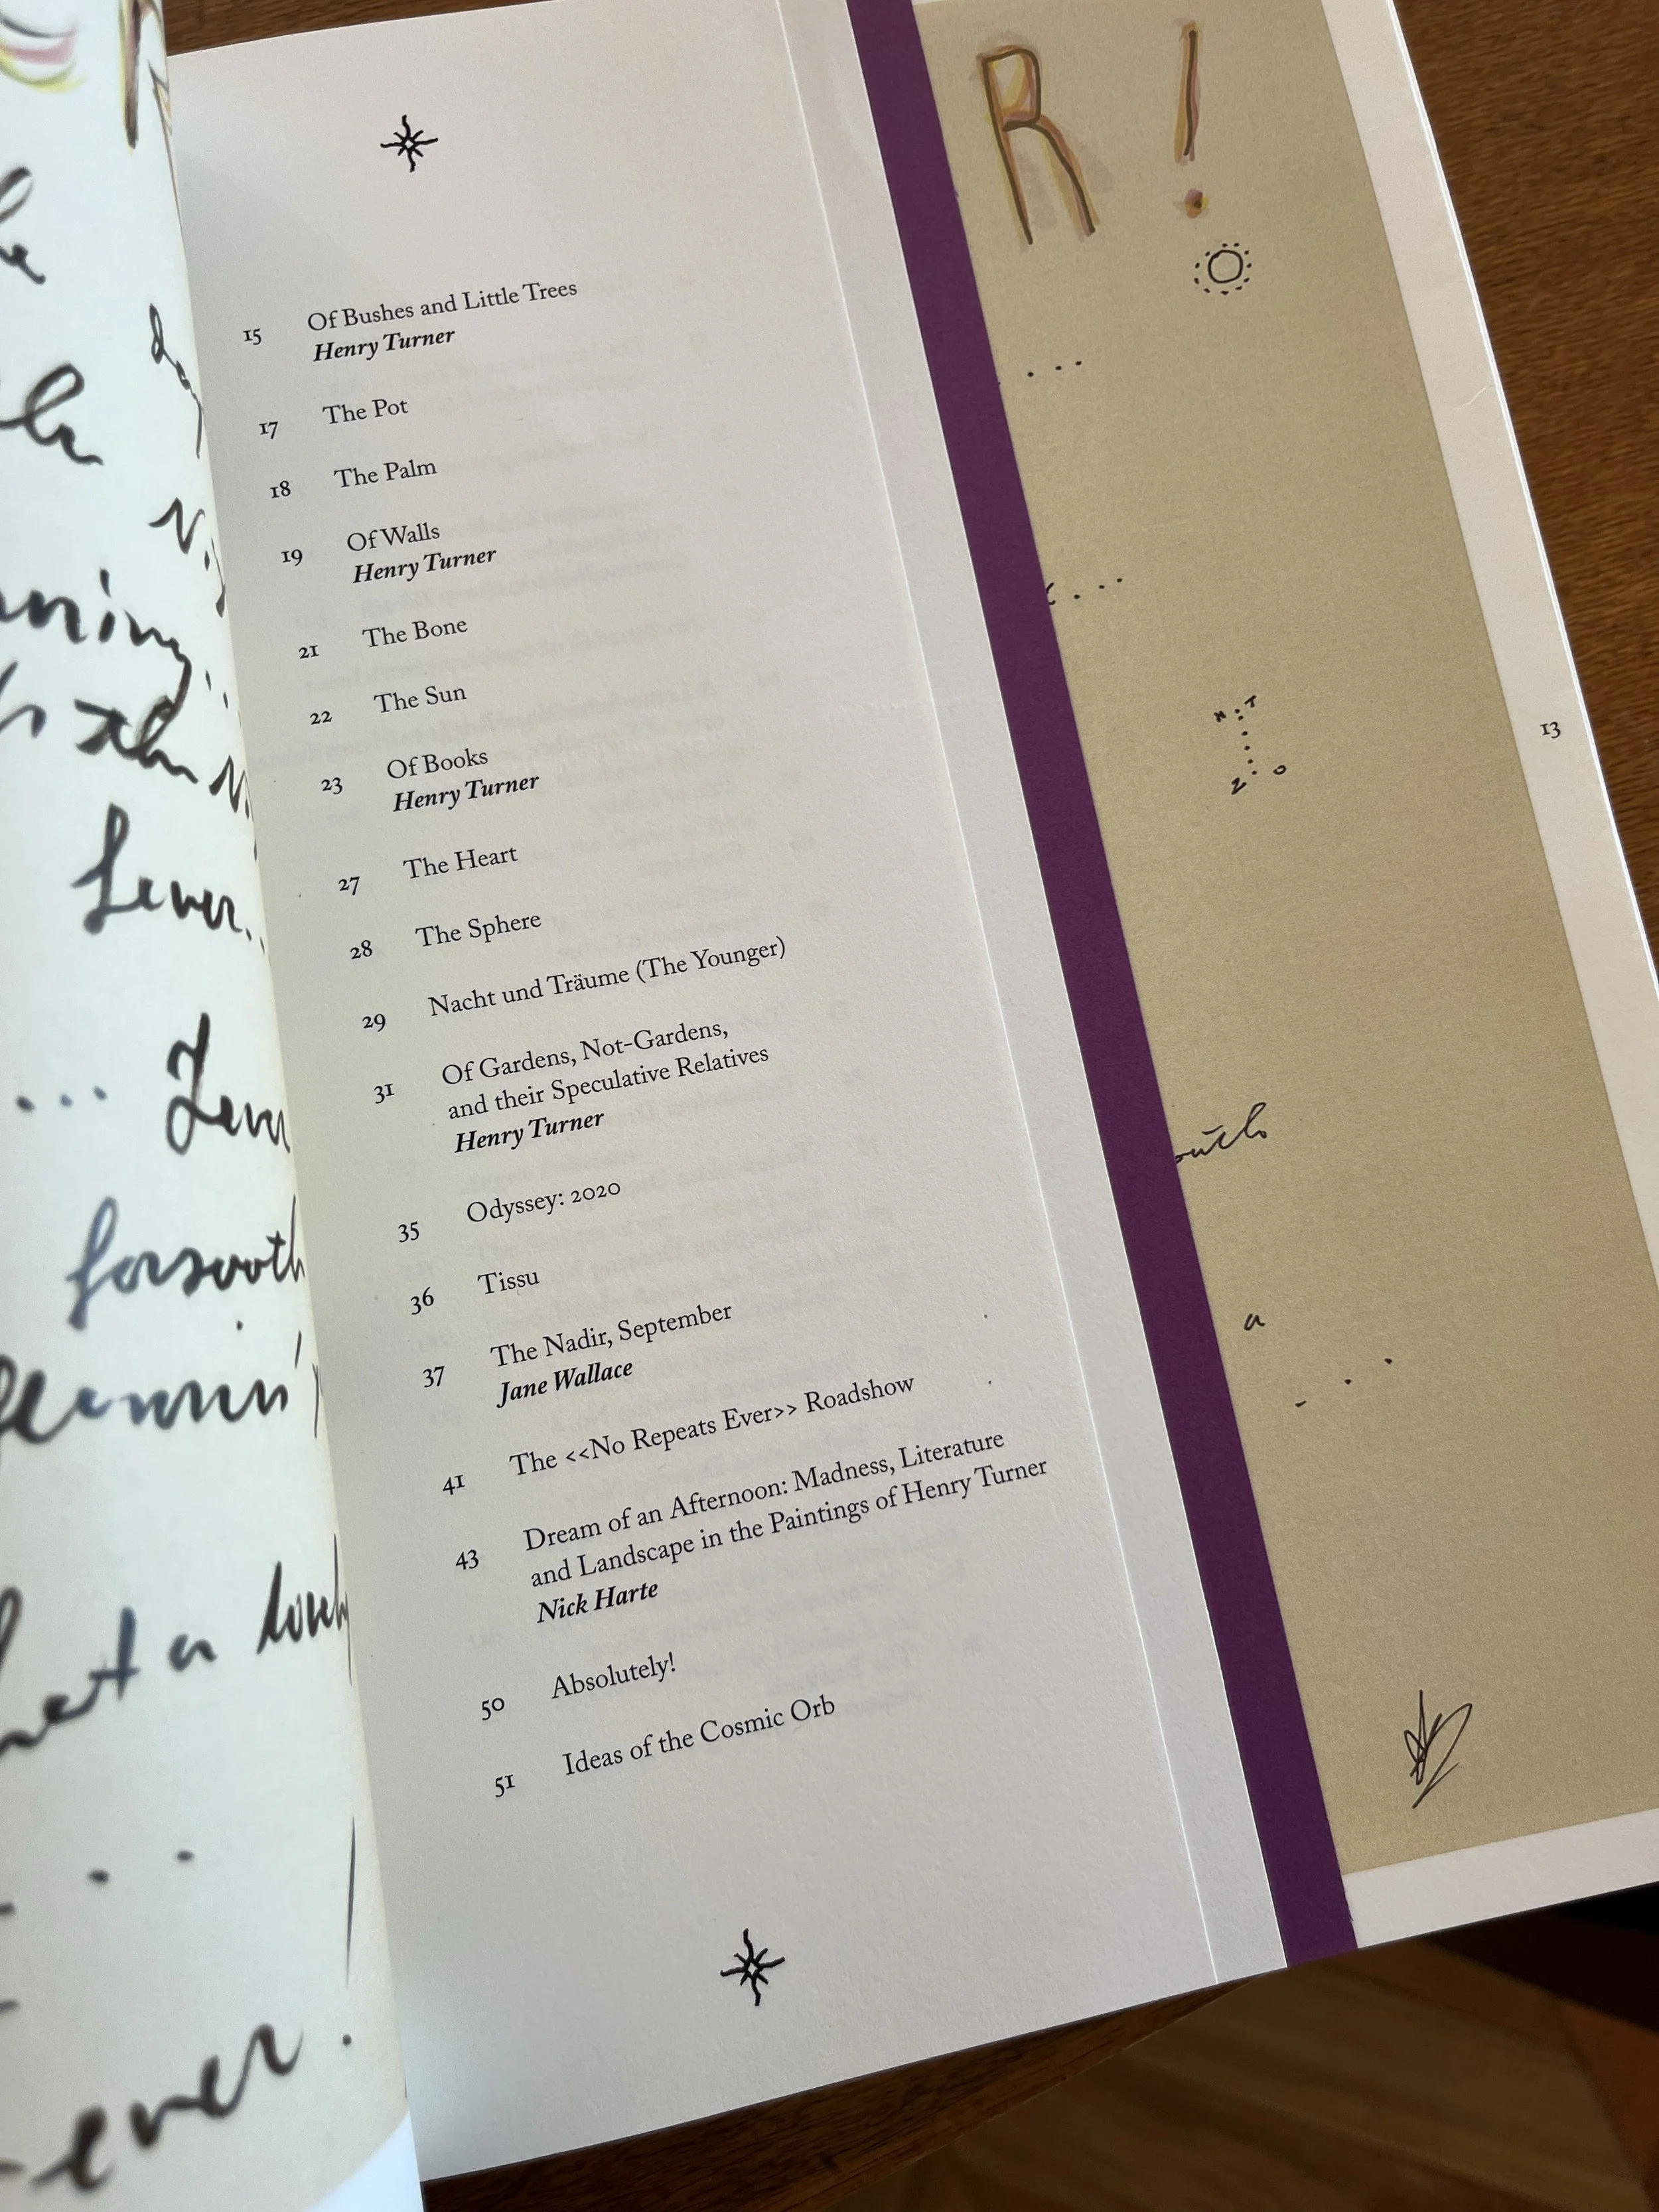 15 Of Bushes and Little Trees
Henry Turner
17 The Pot
18 The Palm
19 Of Walls
Henry Turner
21 The Bone
22 The Sun
23 Of Books
Henry Turner
27 The Heart
28 The Sphere
29 Nacht und Träume (The Younger)
31 Of Gardens, Not-Gardens,
and their Speculative Relatives
Henry Turner
35 Odyssey: 2020
36 Tissu
37 The Nadir, September
Jane Wallace
41 The <<No Repeats Ever>> Roadshow
43 Dream of an Afternoon: Madness, Literature
and Landscape in the Paintings of Henry Turner
Nick Harte
50 Absolutely!
51 Ideas of the Cosmic Orb
R !
a
13
forsooth
ever!